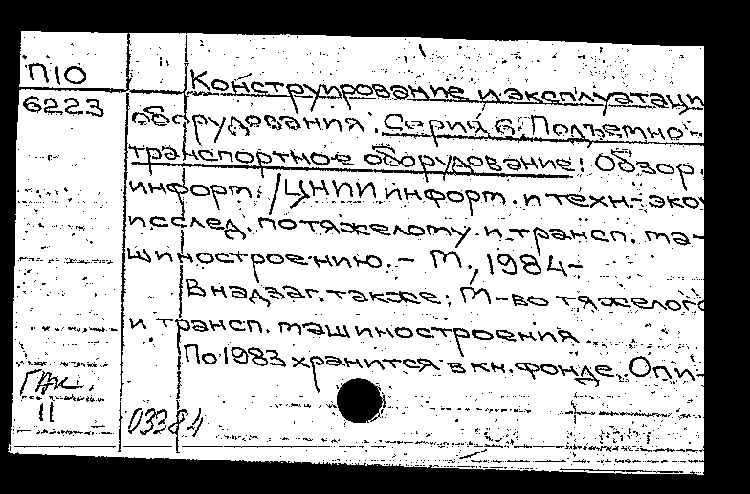 П10
6223
Конструирование и эксплуатаци
оборудования. Серия 6. Подъемно-
транспортное оборудование: Обзор.
информ. / ЦНИИ информ. и техн.-экон
исслед. по тяжелому и трансп. ма-
шиностроению. – М., 1984-
В надзаг. также: М-во тяжелого
и трансп. машиностроения
По 1983 хранится в кн. фонде. Опи-
ГАК.
11
03384